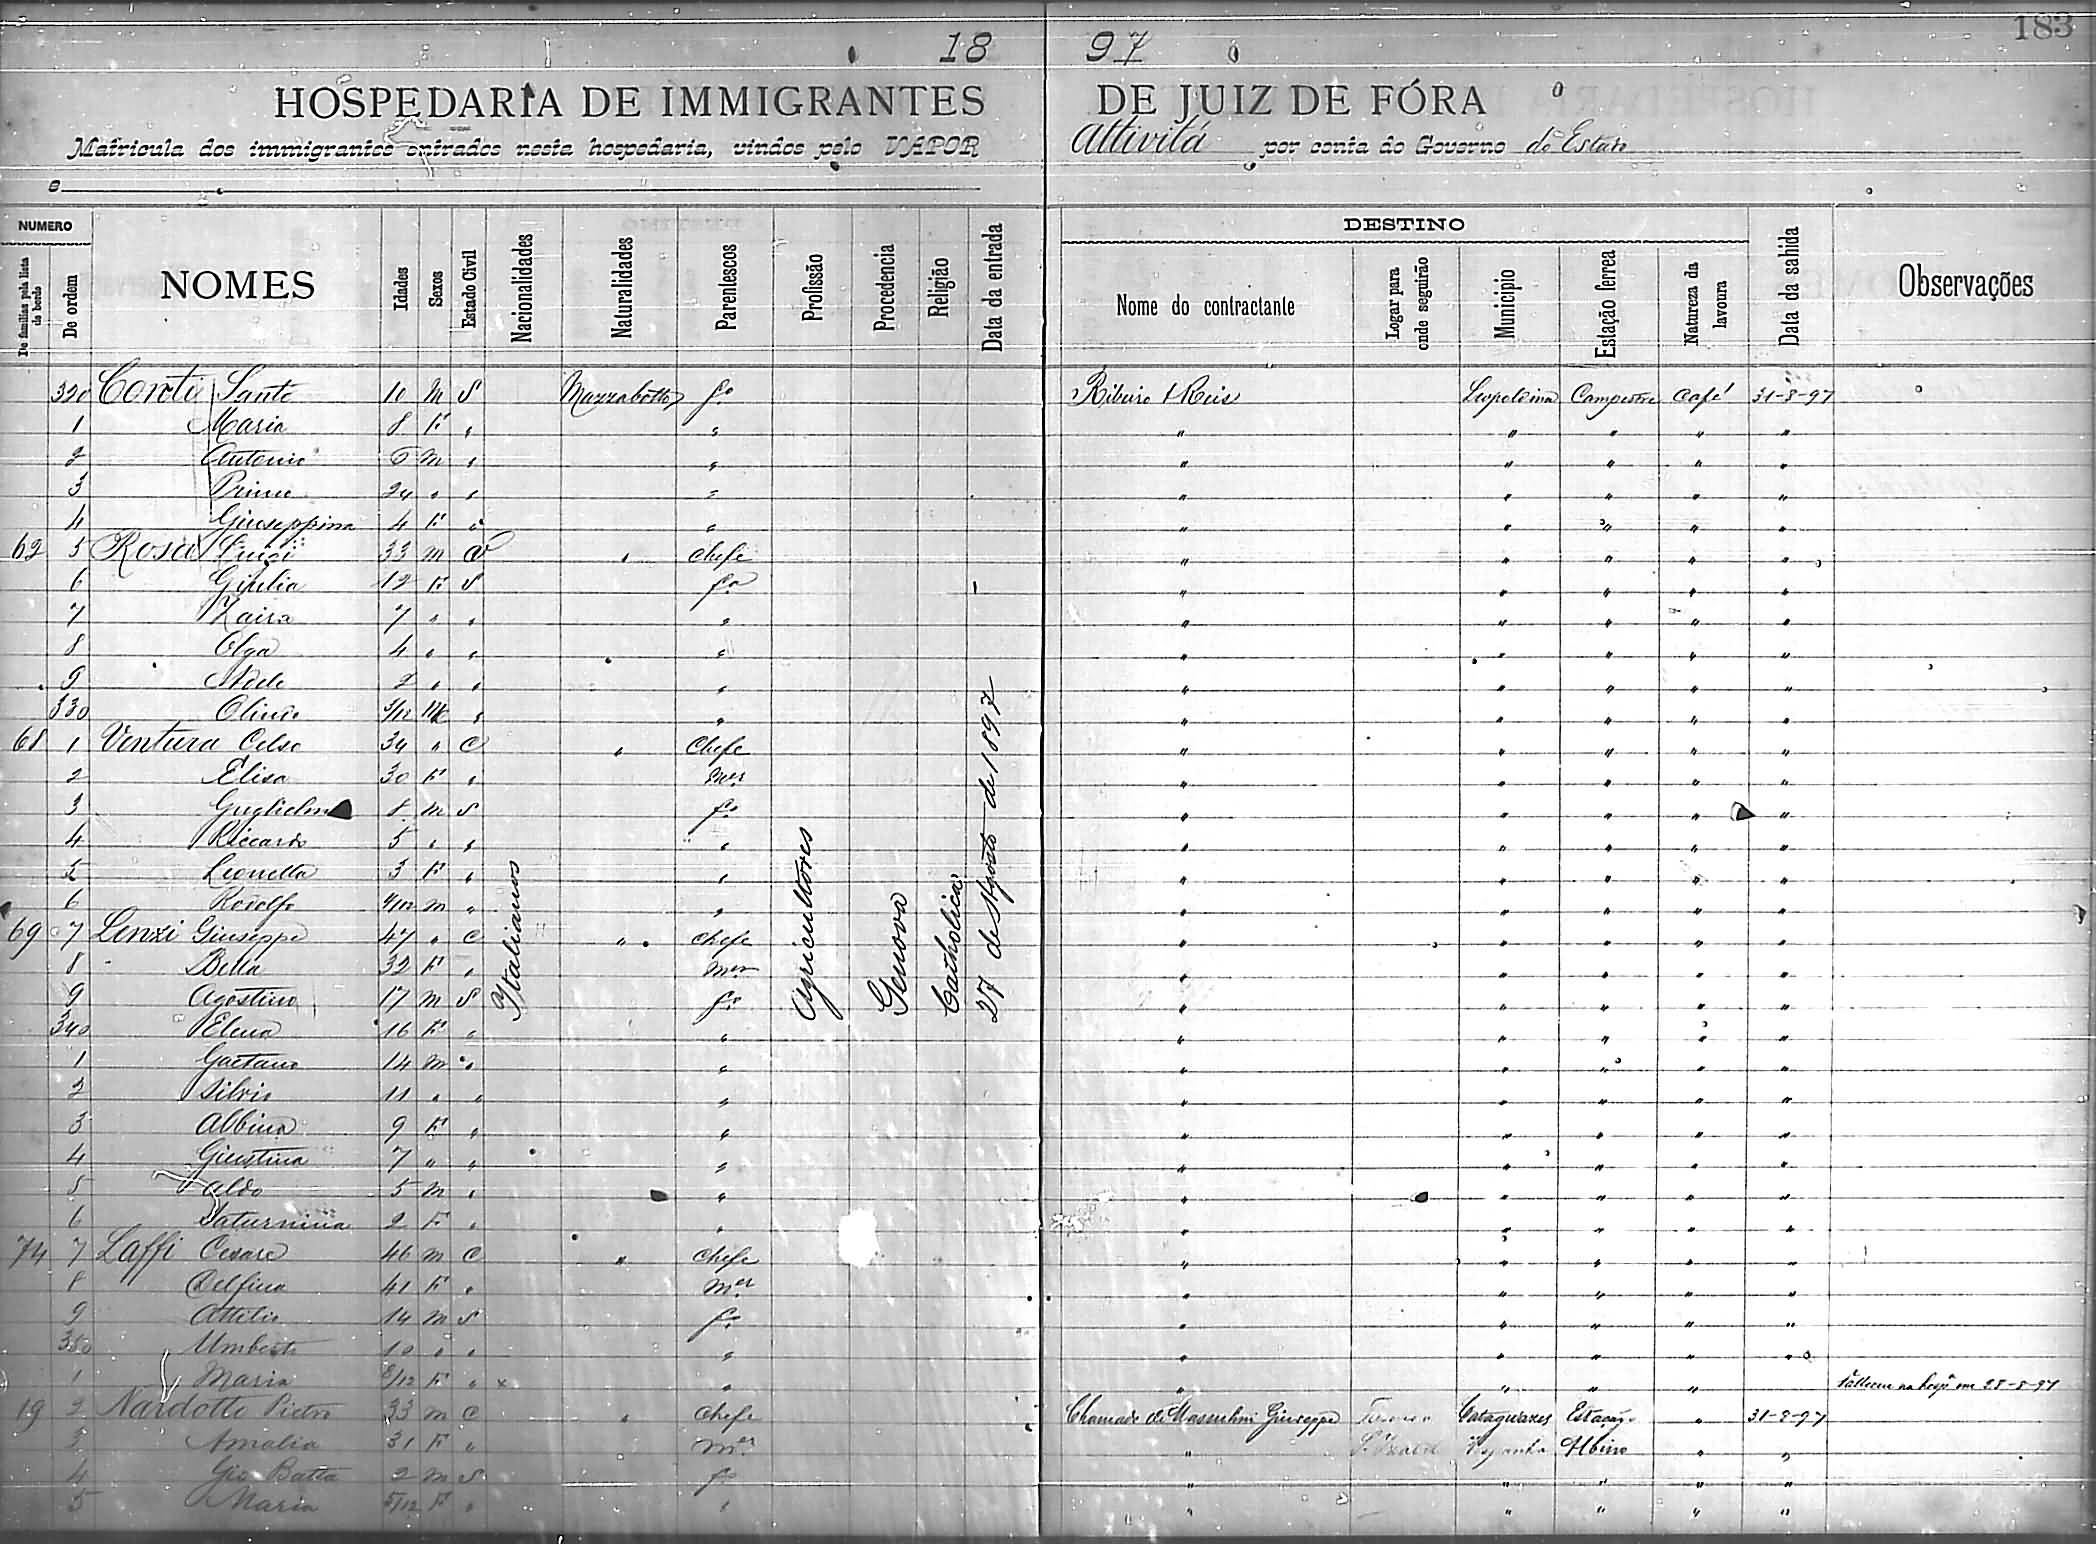 183
18 97
HOSPEDARIA DE IMMIGRANTES DE JUIZ DE FÓRA
Matricula dos immigrantes entrados nesta hospedaria, vindos pelo VAPOR Attivitá por conta do Governo do Estado
e
NUMERO DESTINO
De familias pela lista de bordo De ordem NOMES Idades Sexos Estado Civil Nacionalidades Naturalidades Parentescos Profissão Procedencia Religião Data da entrada Nome do contractante Logar para onde seguirão Municipio Estação ferrea Natureza da lavoura Data da sahida Observações
320 Conti Sante 10 M S Mazzabotto fº Ribeiro & Reis Leopoldina Campestre Café 31-8-97
1 Maria 8 F " " " " " " "
2 Antonio 6 M " " " " " " "
3 Primo 24 " " " " " " " "
4 Giuseppina 4 F " " " " " " "
62 5 Rosa Luigi 33 M V " Chefe " " " " "
6 Giulia 12 F S fª " " " " "
7 Zaira 7 " " " " " " " "
8 Olga 4 " " " " " " " "
9 2 " " " " " " " "
330 Olindo 3/12 M " " " " " " "
68 1 Ventura Celso 34 " C " Chefe " " " " "
2 Elisa 30 F " Mer " " " " "
3 Guglielmo 8 M S fº " " " " "
4 Riccardo 5 " " " " " " " "
5 Leonella 3 F " " " " " " "
6 Rodolfo 4/12 M " " " " " " "
69 7 Lenzi Giuseppe 47 " C " Chefe " " " " "
8 Bella 32 F " Mer " " " " "
9 Agostino 17 M S fº " " " " "
340 Elena 16 F " " " " " " "
1 Gaetano 14 M " " " " " " "
2 Silvio 11 " " " " " " " "
3 Albina 9 F " " " " " " "
4 Giustina 7 " " " " " " " "
5 Aldo 5 M " " " " " " "
6 Saturnina 2 F " " " " " " "
74 7 Laffi Cesare 46 M C " Chefe " " " " "
8 Delfina 41 F " Mer " " " " "
9 Attilio 14 M S fº " " " " "
350 Umberto 10 " " " " " " " "
1 Maria 8/12 F " x " " " " " Falleceu na hospª em 28-8-97
19 2 Nardotto Pietro 33 M C " Chefe Chamado de Massolini Giuseppe Cataguazes Estação " 31-8-97
3 Amalia 31 F " Mer " " "
4 Gio Batta 2 M S fº " " " " "
5 Maria 5/12 F " " " " " " "
Italianos
Agricultores
Genova
Catholica
27 de Agosto de 1897